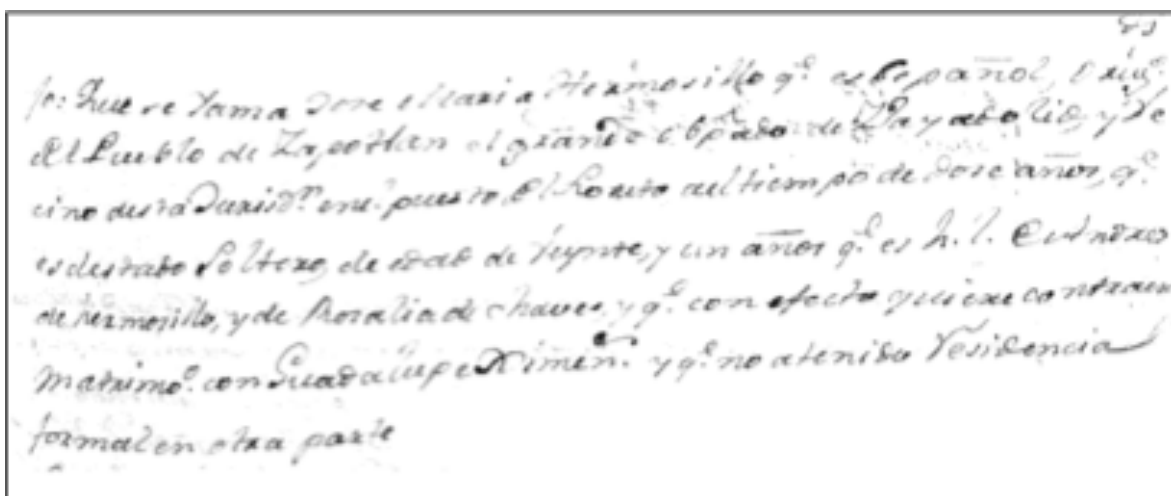 jo: Que se Yama Jose Maria Hermosillo q.e es Español, Orig.o
del Pueblo de Zapotlan el grande Obpado de Vayadolid, y Ve
cino desta Jurisd.n en el puesto del Lorito del tiempo de dose años, q.e
es destado Soltero, de edad de Veynte, y un años q.e es h. l. de
de hermosillo, y de Rosalia de chaves, y q.e con efecto quiere contraer
Matrimo.o con Guadalupe Ximen.s y q.e no a tenido Residencia
formal en otra parte